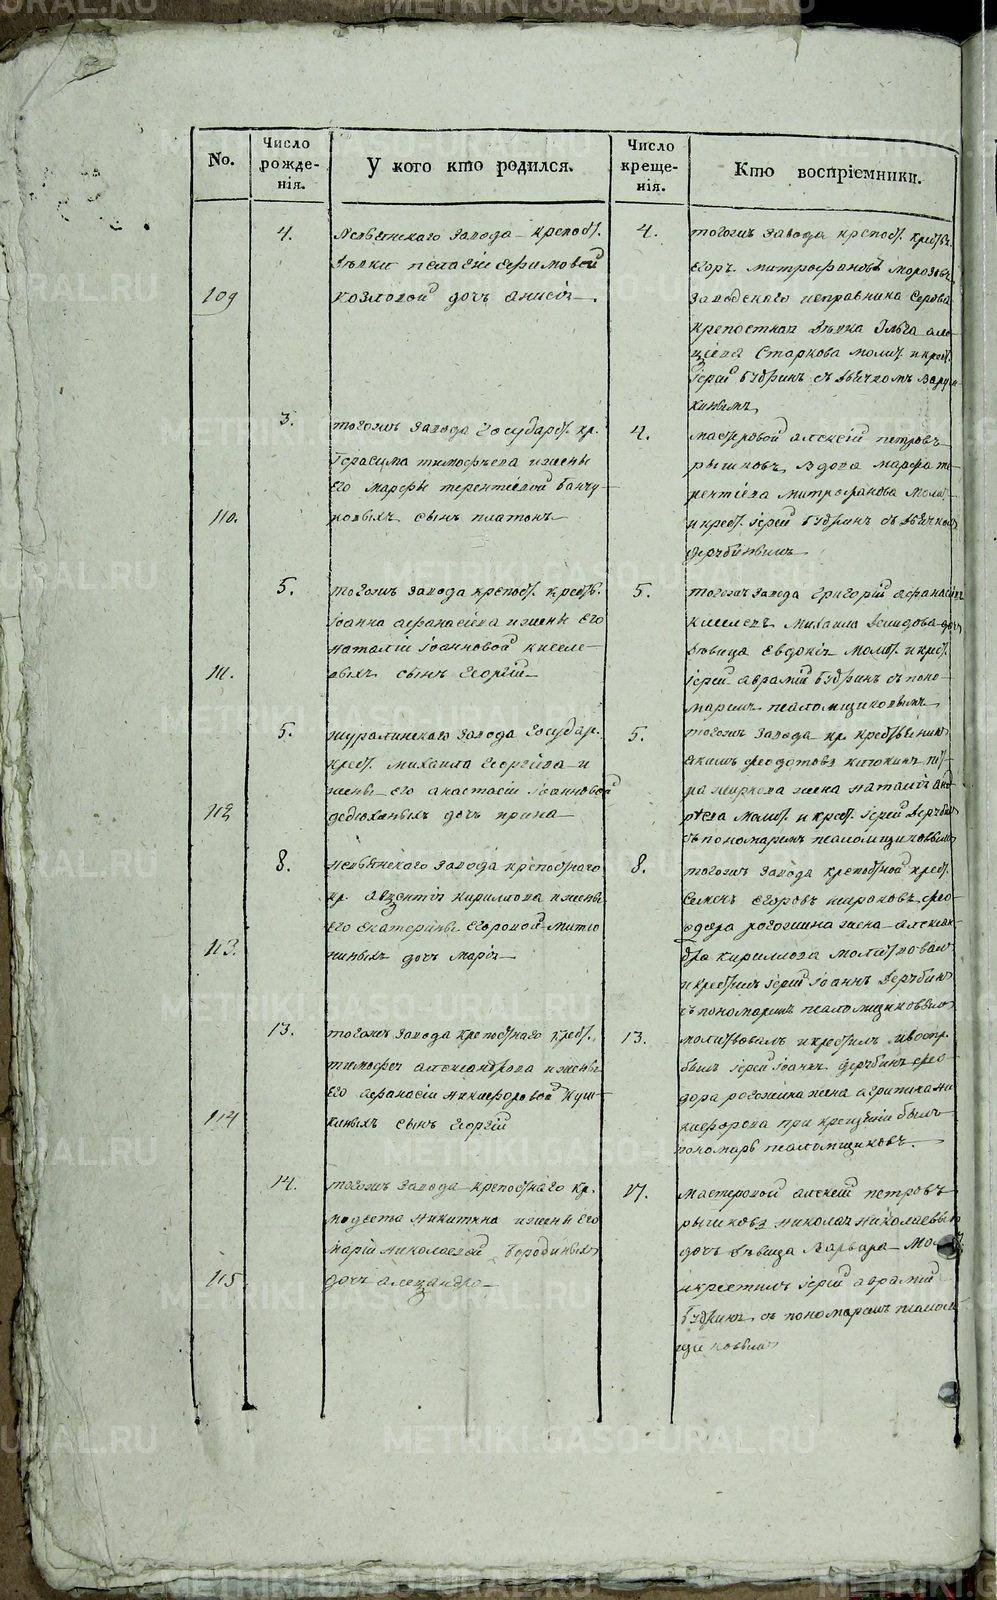 No.
Число рожде-нія.
У кого кто родился.
Число креще-нія.
Кто воспріемники.
109
4.
Невьянскаго завода крепост.
Дѣвки пелагеи ефимовой
козловой дочь анисія
4.
тогожъ завода крепост. крестьян.
Егоръ митрофановъ морозовъ
заводскаго исправника Серова
крепостная дѣвка
Старкова молит. и крест.
Іерей Будринъ съ дьячкомъ
110.
3.
тогожъ завода Государст. кр.
Герасима тимофѣева и жены
Его марфы терентіевой банчу-
ковыхъ сынъ платонъ
4.
мастеровой алексѣй петровъ
рышковъ, вдова марфа те-
рентіева митрофанова молит.
и крест. Іерей Будринъ съ дьячком
111.
5.
тогожъ завода крепост. крестьян.
Іоанна афанасіева и жены Его
наталіи Іоанновой киселе-
выхъ сынъ Георгій
5.
тогожъ завода григорій афанасіев
киселевъ михаила демидова дочь
дѣвица Евдокія молит. и крест.
Іерей аврамій Будринъ съ поно-
маремъ псаломщиковымъ
112
5.
шуралинскаго завода Государ.
крест. михаила Георгіева и
жены Его анастасіи Іоанновой
дедюхиныхъ дочь ирина
5.
тогожъ завода кр. крестьянин
акимъ федотовъ пет-
ра жена наталія анд-
реева молит. и крест. Іерей
съ пономаремъ псаломщиковымъ
113.
8.
невьянскаго завода крепостнаго
кр. авзентія кирилова и жены
Его екатерины Егоровой митю-
ниныхъ дочь марія
8.
тогожъ завода крепостной крест.
Семенъ Егоровъ широковъ, фео-
дора рогожина жена алексан-
дра кирилова молитвовал
и крестилъ Іерей Іоаннъ
съ пономаремъ псаломщиковым
114
13.
тогожъ завода крепостнаго крест.
тимофея александрова и жены
Его афанасіи никифоровой куш-
киныхъ сынъ Георгій
13.
молитвовалъ и крестилъ и воспр.
былъ Іерей Іоаннъ фео-
дора рогожина жена агрипина ни-
кифорова при крещеніи былъ
пономарь псаломщиковъ.
115
14.
тогожъ завода крепостнаго кр.
модеста никитина и жены Его
маріи николаевой бородиныхъ
дочь алезандра
17.
мастеровой алексѣй петровъ
рышковъ николая николаева
дочь дѣвица варвара мол
и крестилъ Іерей аврамій
Будринъ съ пономаремъ псалом
щиковымъ
METRIKI.GASO-URAL.RU